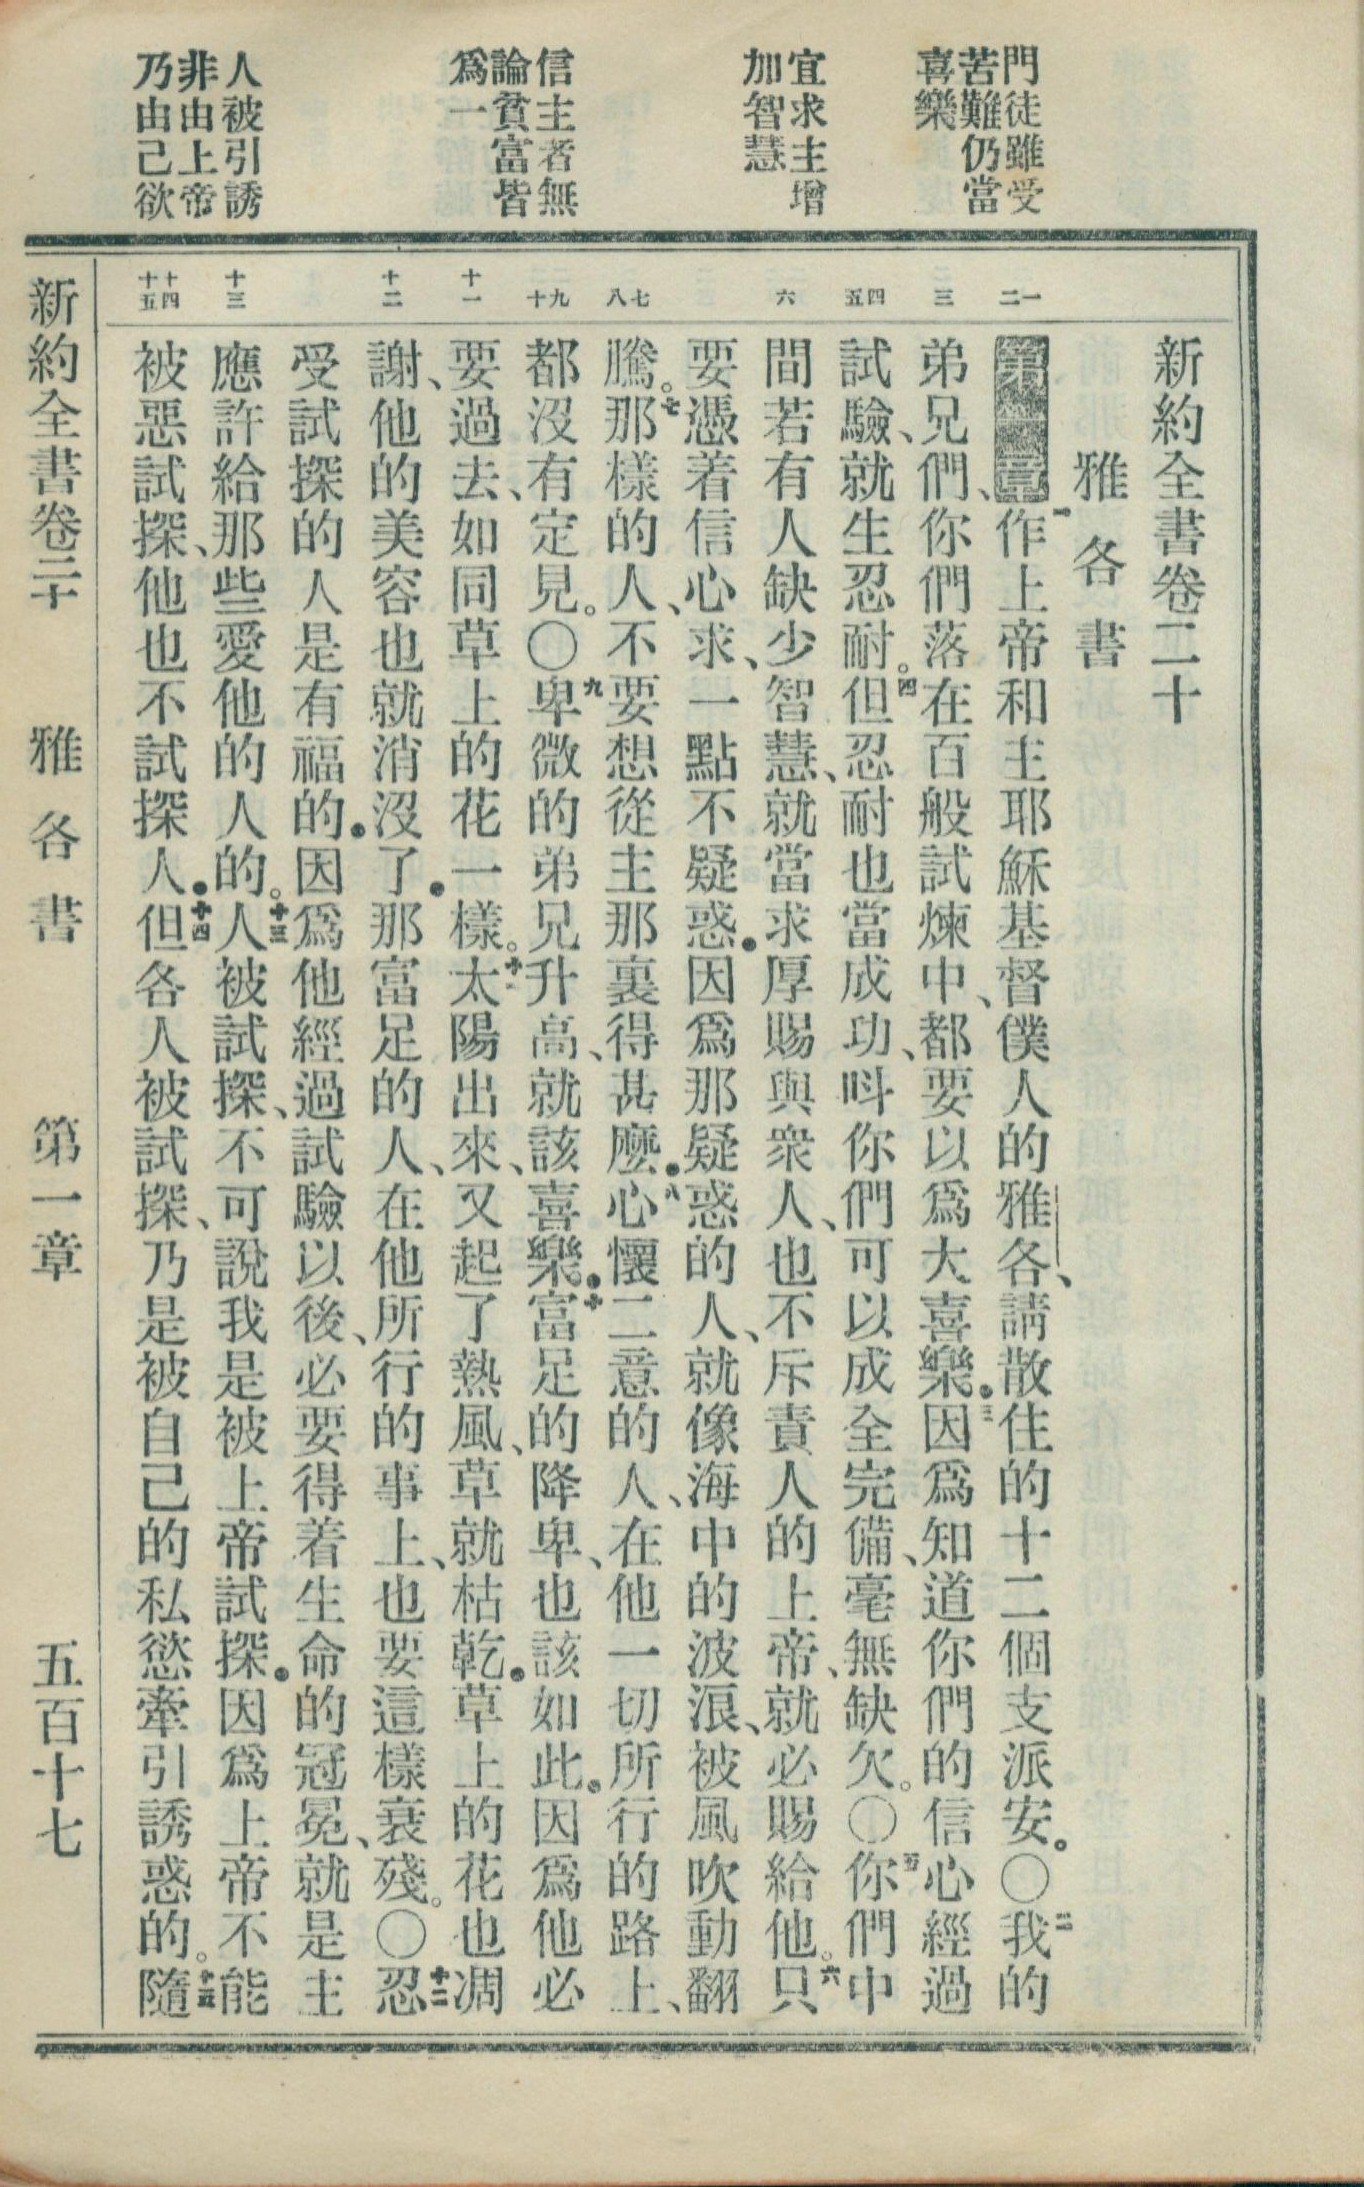 門徒雖受
苦難仍當
喜樂
宜求主增
加智慧
信主者無
論貧富皆
爲一
人被引誘
非由上帝
乃由己欲
一 二
三
四 五
六
七 八
九 十
十一
十二
十三
十四 十五
新約全書卷二十
雅各書
第一章一作上帝和主耶穌基督僕人的雅各、請散住的十二個支派安。〇二我的
弟兄們、你們落在百般試煉中、都要以爲大喜樂．三因爲知道你們的信心經過
試驗、就生忍耐。四但忍耐也當成功、呌你們可以成全完備、毫無缺欠。〇五你們中
間若有人缺少智慧、就當求厚賜與衆人、也不斥責人的上帝、就必賜給他。六只
要憑着信心求、一點不疑惑．因爲那疑惑的人、就像海中的波浪、被風吹動翻
騰。七那樣的人、不要想從主那裏得甚麼．八心懷二意的人、在他一切所行的路上、
都沒有定見。〇九卑微的弟兄升高、就該喜樂．十富足的降卑、也該如此．因爲他必
要過去、如同草上的花一樣。十一太陽出來、又起了熱風、草就枯乾．草上的花也凋
謝、他的美容也就消沒了．那富足的人、在他所行的事上、也要這樣衰殘。〇十二忍
受試探的人是有福的．因爲他經過試驗以後、必要得着生命的冠冕、就是主
應許給那些愛他的人的。十三人被試探、不可說我是被上帝試探．因爲上帝不能
被惡試探、他也不試探人．十四但各人被試探、乃是被自己的私慾牽引誘惑的。十五隨
新約全書卷二十 雅各書 第一章 五百十七